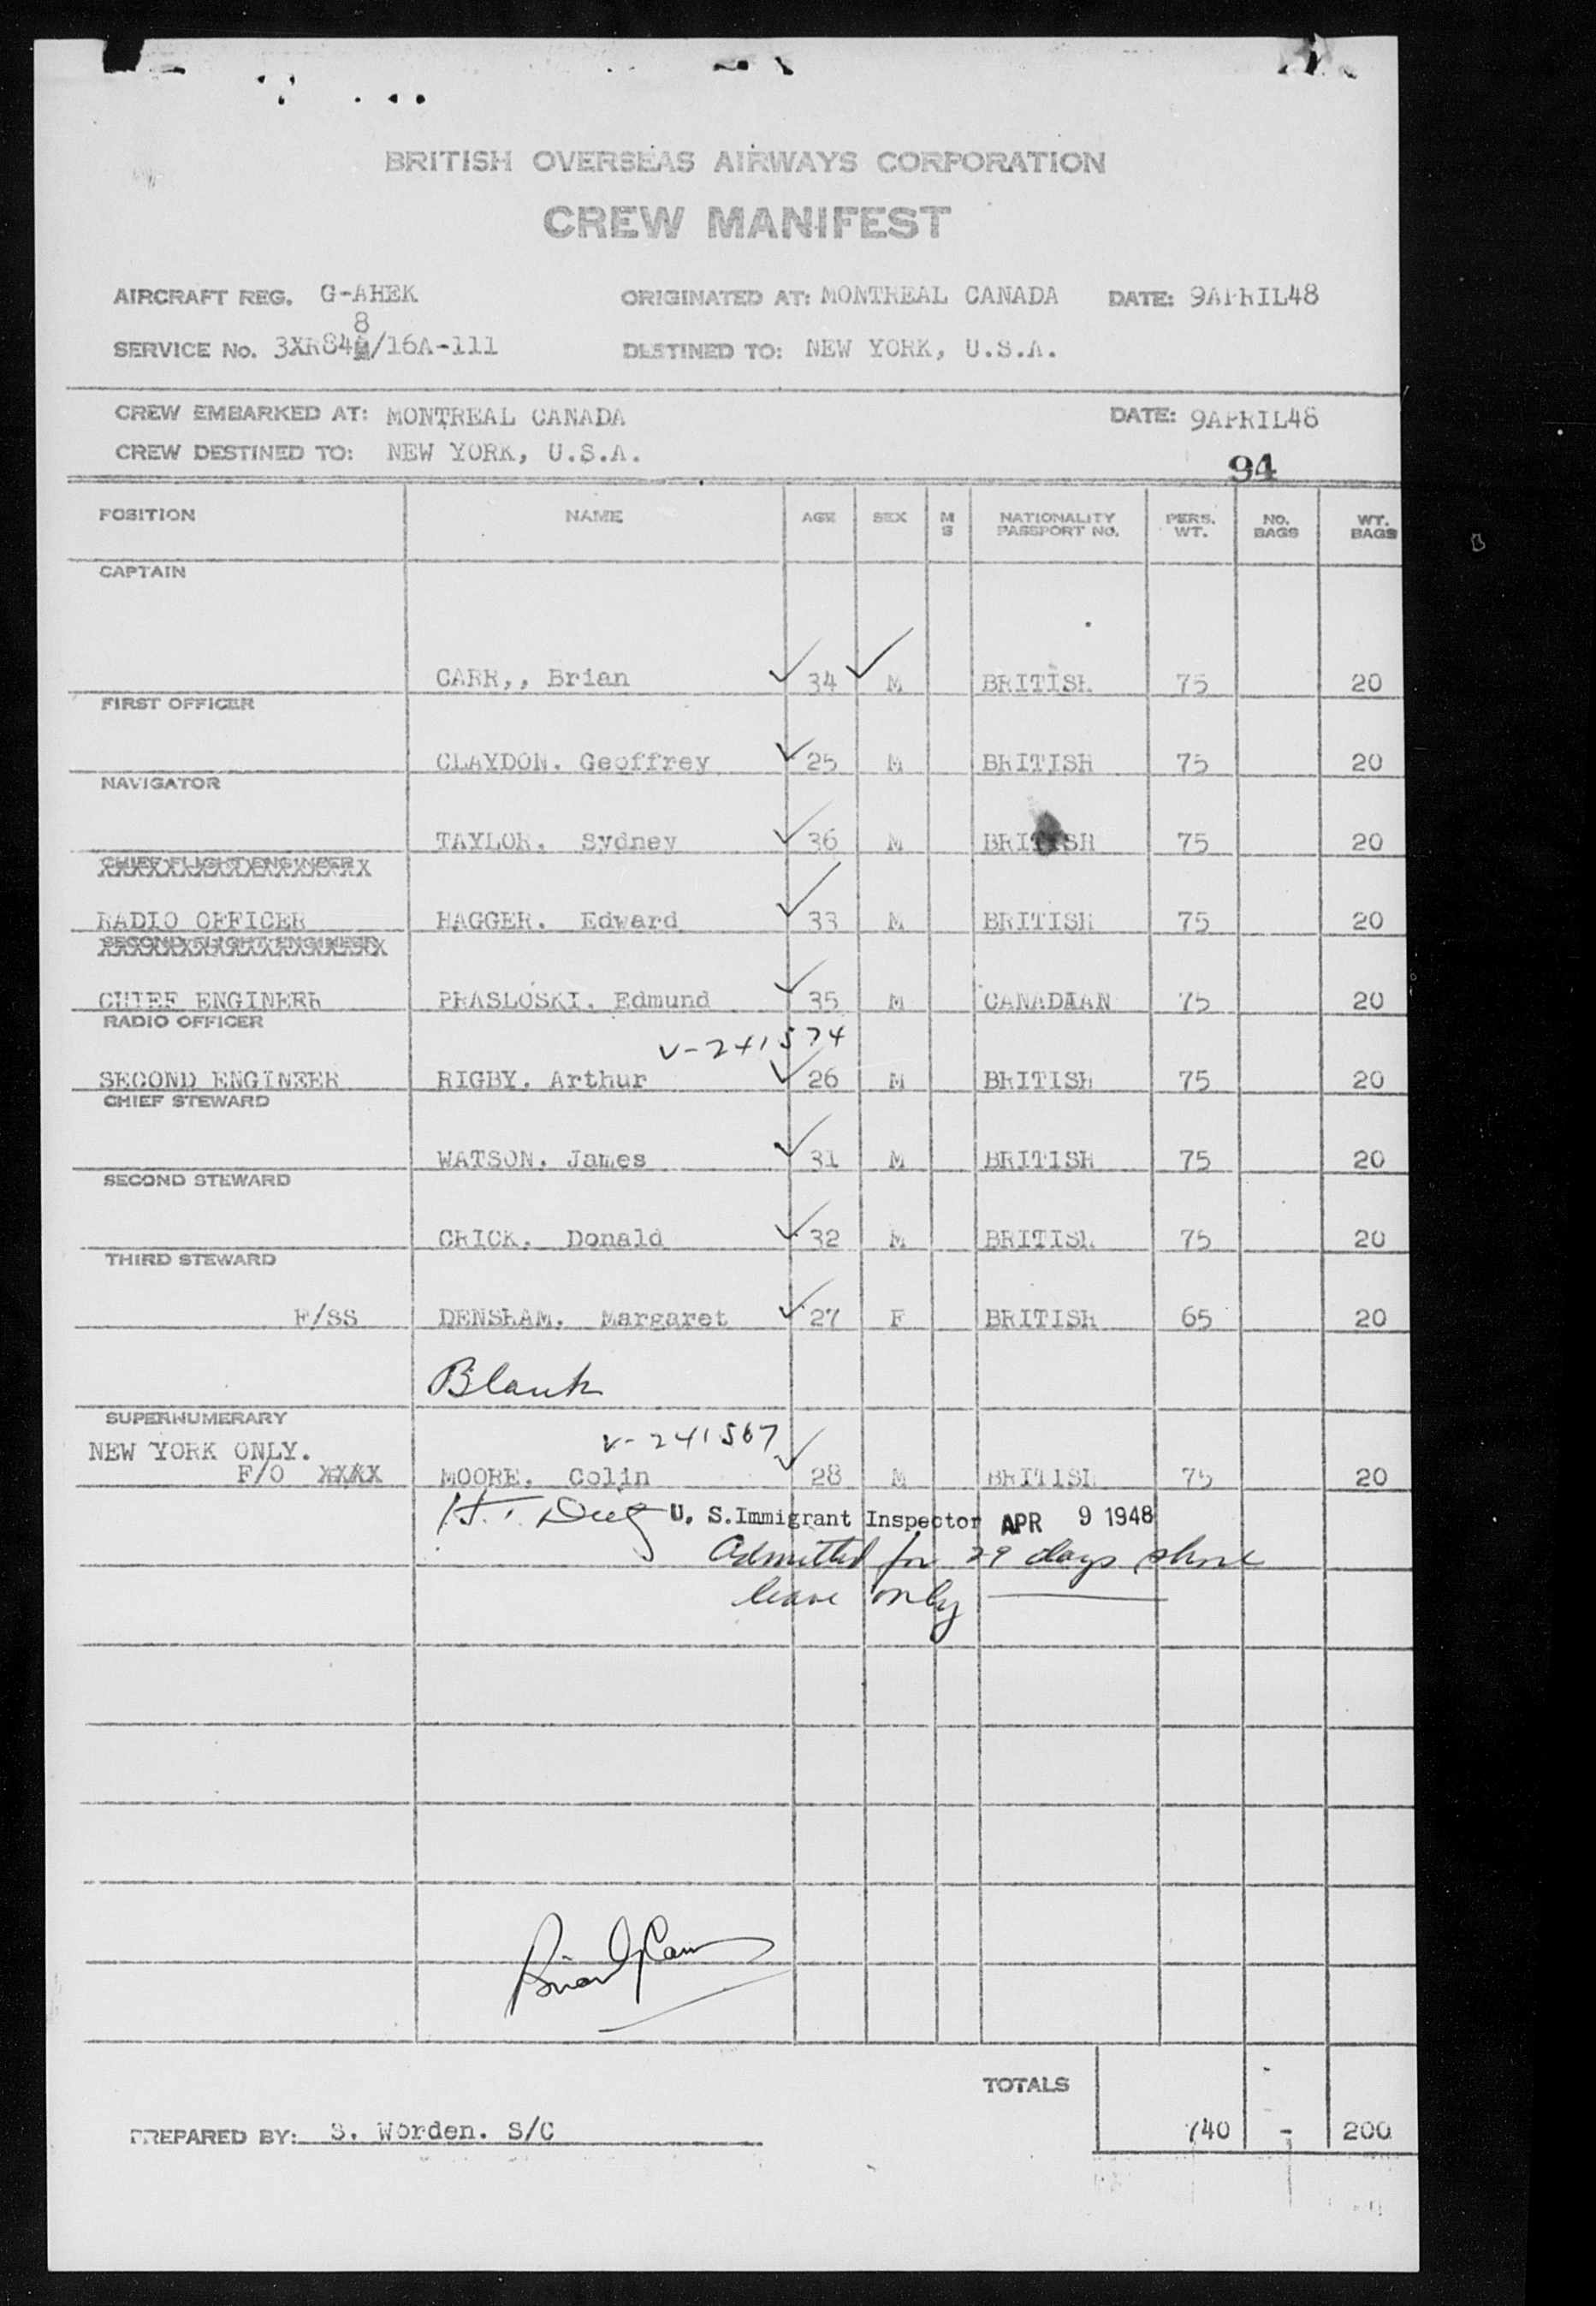 BRITISH OVERSEAS AIRWAYS CORPORATION
CREW MANIFEST
AIRCRAFT REG. G-AHEK ORIGINATED AT: MONTREAL CANADA DATE: 9APRIL48
8
SERVICE No. 3XR84/16A-111 DESTINED TO: NEW YORK, U.S.A.
CREW EMBARKED AT: MONTREAL CANADA DATE: 9APRIL48
CREW DESTINED TO: NEW YORK, U.S.A.
94
POSITION NAME AGE SEX M S NATIONALITY PASSPORT NO. PERS. WT. NO. BAGS WT. BAGS
CAPTAIN
CARR,, Brian 34 M BRITISH 75 20
FIRST OFFICER
CLAYDON. Geoffrey 25 M BRITISH 75 20
NAVIGATOR
TAYLOR. Sydney 36 M BRITISH 75 20
CHIEF FLIGHT ENGINEER
RADIO OFFICER HAGGER. Edward 33 M BRITISH 75 20
SECOND FLIGHT ENGINEER
CHIEF ENGINERR PRASLOSKI. Edmund 35 M CANADIAN 75 20
RADIO OFFICER
V-241574
SECOND ENGINEER RIGBY. Arthur 26 M BRITISH 75 20
CHIEF STEWARD
WATSON. James 31 M BRITISH 75 20
SECOND STEWARD
CRICK. Donald 32 M BRITISH 75 20
THIRD STEWARD
F/SS DENSHAM. Margaret 27 F BRITISH 65 20
Blank
SUPERNUMERARY
NEW YORK ONLY. V-241567
F/O XXXX MOORE. Colin 28 M BRITISH 75 20
U. S. Immigrant Inspector APR 9 1948
Admitted for 29 days shore
leave only
TOTALS
PREPARED BY: S. Worden. S/C 740 - 200